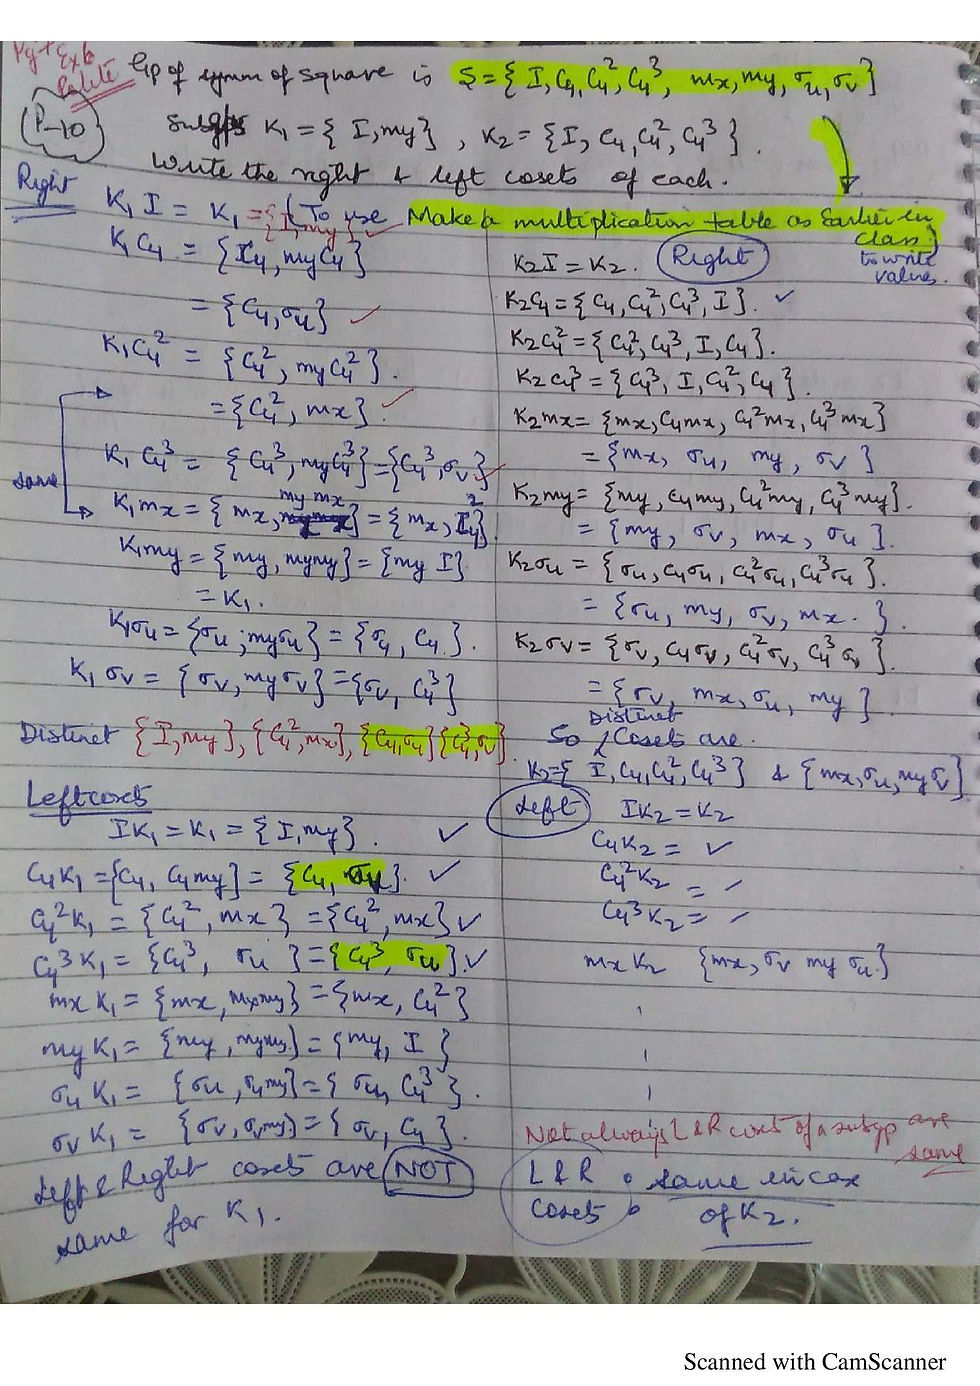 Pg + Exb
Relete
P-10
Gp of symm of square is S = { I, C₄, C₄², C₄³, mx, my, σu, σv }
Subgps K₁ = { I, my } , K₂ = { I, C₄, C₄², C₄³ } .
Write the right & left cosets of each.
Right
K₁ I = K₁ = { I, my } ✓ (To use Make a multiplication table as Earlier in class } to write values.
K₁C₄ = { IC₄, myC₄ }
= { C₄, σu } ✓
K₁C₄² = { C₄², myC₄² } .
= { C₄², mx } . ✓
K₁ C₄³ = { C₄³, myC₄³ } = { C₄³, σv } ✓
same
K₁mx = { mx, my mx } = { mx, C₄² } .
K₁my = { my, mymy } = { my I }
= K₁ .
K₁σu = { σu ; myσu } = { σu , C₄ } .
K₁ σv = { σv, my σv } = { σv, C₄³ }
Distinct { I, my }, { C₄², mx }, { C₄, σu } { C₄³, σv } .
Right
K₂I = K₂ .
K₂C₄ = { C₄, C₄², C₄³, I } . ✓
K₂C₄² = { C₄², C₄³, I, C₄ } .
K₂ C₄³ = { C₄³, I, C₄², C₄ } .
K₂mx = { mx, C₄mx, C₄²mx, C₄³mx }
= { mx, σu, my, σv }
K₂my = { my, C₄my, C₄²my, C₄³my } .
= { my, σv, mx, σu } .
K₂σu = { σu, C₄σu, C₄²σu, C₄³σu } .
= { σu, my, σv, mx . } .
K₂σv = { σv, C₄σv, C₄²σv, C₄³ σv } .
= { σv, mx, σu, my } .
So Distinct Cosets are .
K₂ = { I, C₄, C₄², C₄³ } & { mx, σu, my σv }
Left cosets
IK₁ = K₁ = { I, my } . ✓
C₄K₁ = { C₄, C₄my } = { C₄, σv } . ✓
C₄²K₁ = { C₄², mx } = { C₄², mx } ✓
C₄³K₁ = { C₄³, σu } = { C₄³, σu } . ✓
mx K₁ = { mx, mxmy } = { mx, C₄² }
my K₁ = { my, mymy } = { my, I }
σu K₁ = { σu, σumy } = { σu, C₄³ } .
σv K₁ = { σv, σvmy } = { σv, C₄ } .
Left & Right cosets are NOT
same for K₁ .
Left
IK₂ = K₂
C₄K₂ = ✓
C₄²K₂ = ✓
C₄³K₂ = ✓
mxK₂ { mx, σv my σu . }
Not always L & R coset of a subgp are same
L & R cosets : same in case
of K₂ .
Scanned with CamScanner